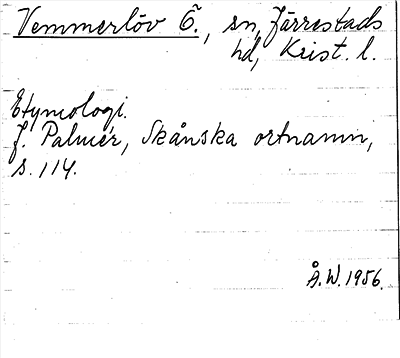 Vemmerlöv Ö., sn, Järrestads
hd, Krist. l.
Etymologi.
J. Palmér, Skånska ortnamn,
s. 114.
Å.W. 1956.